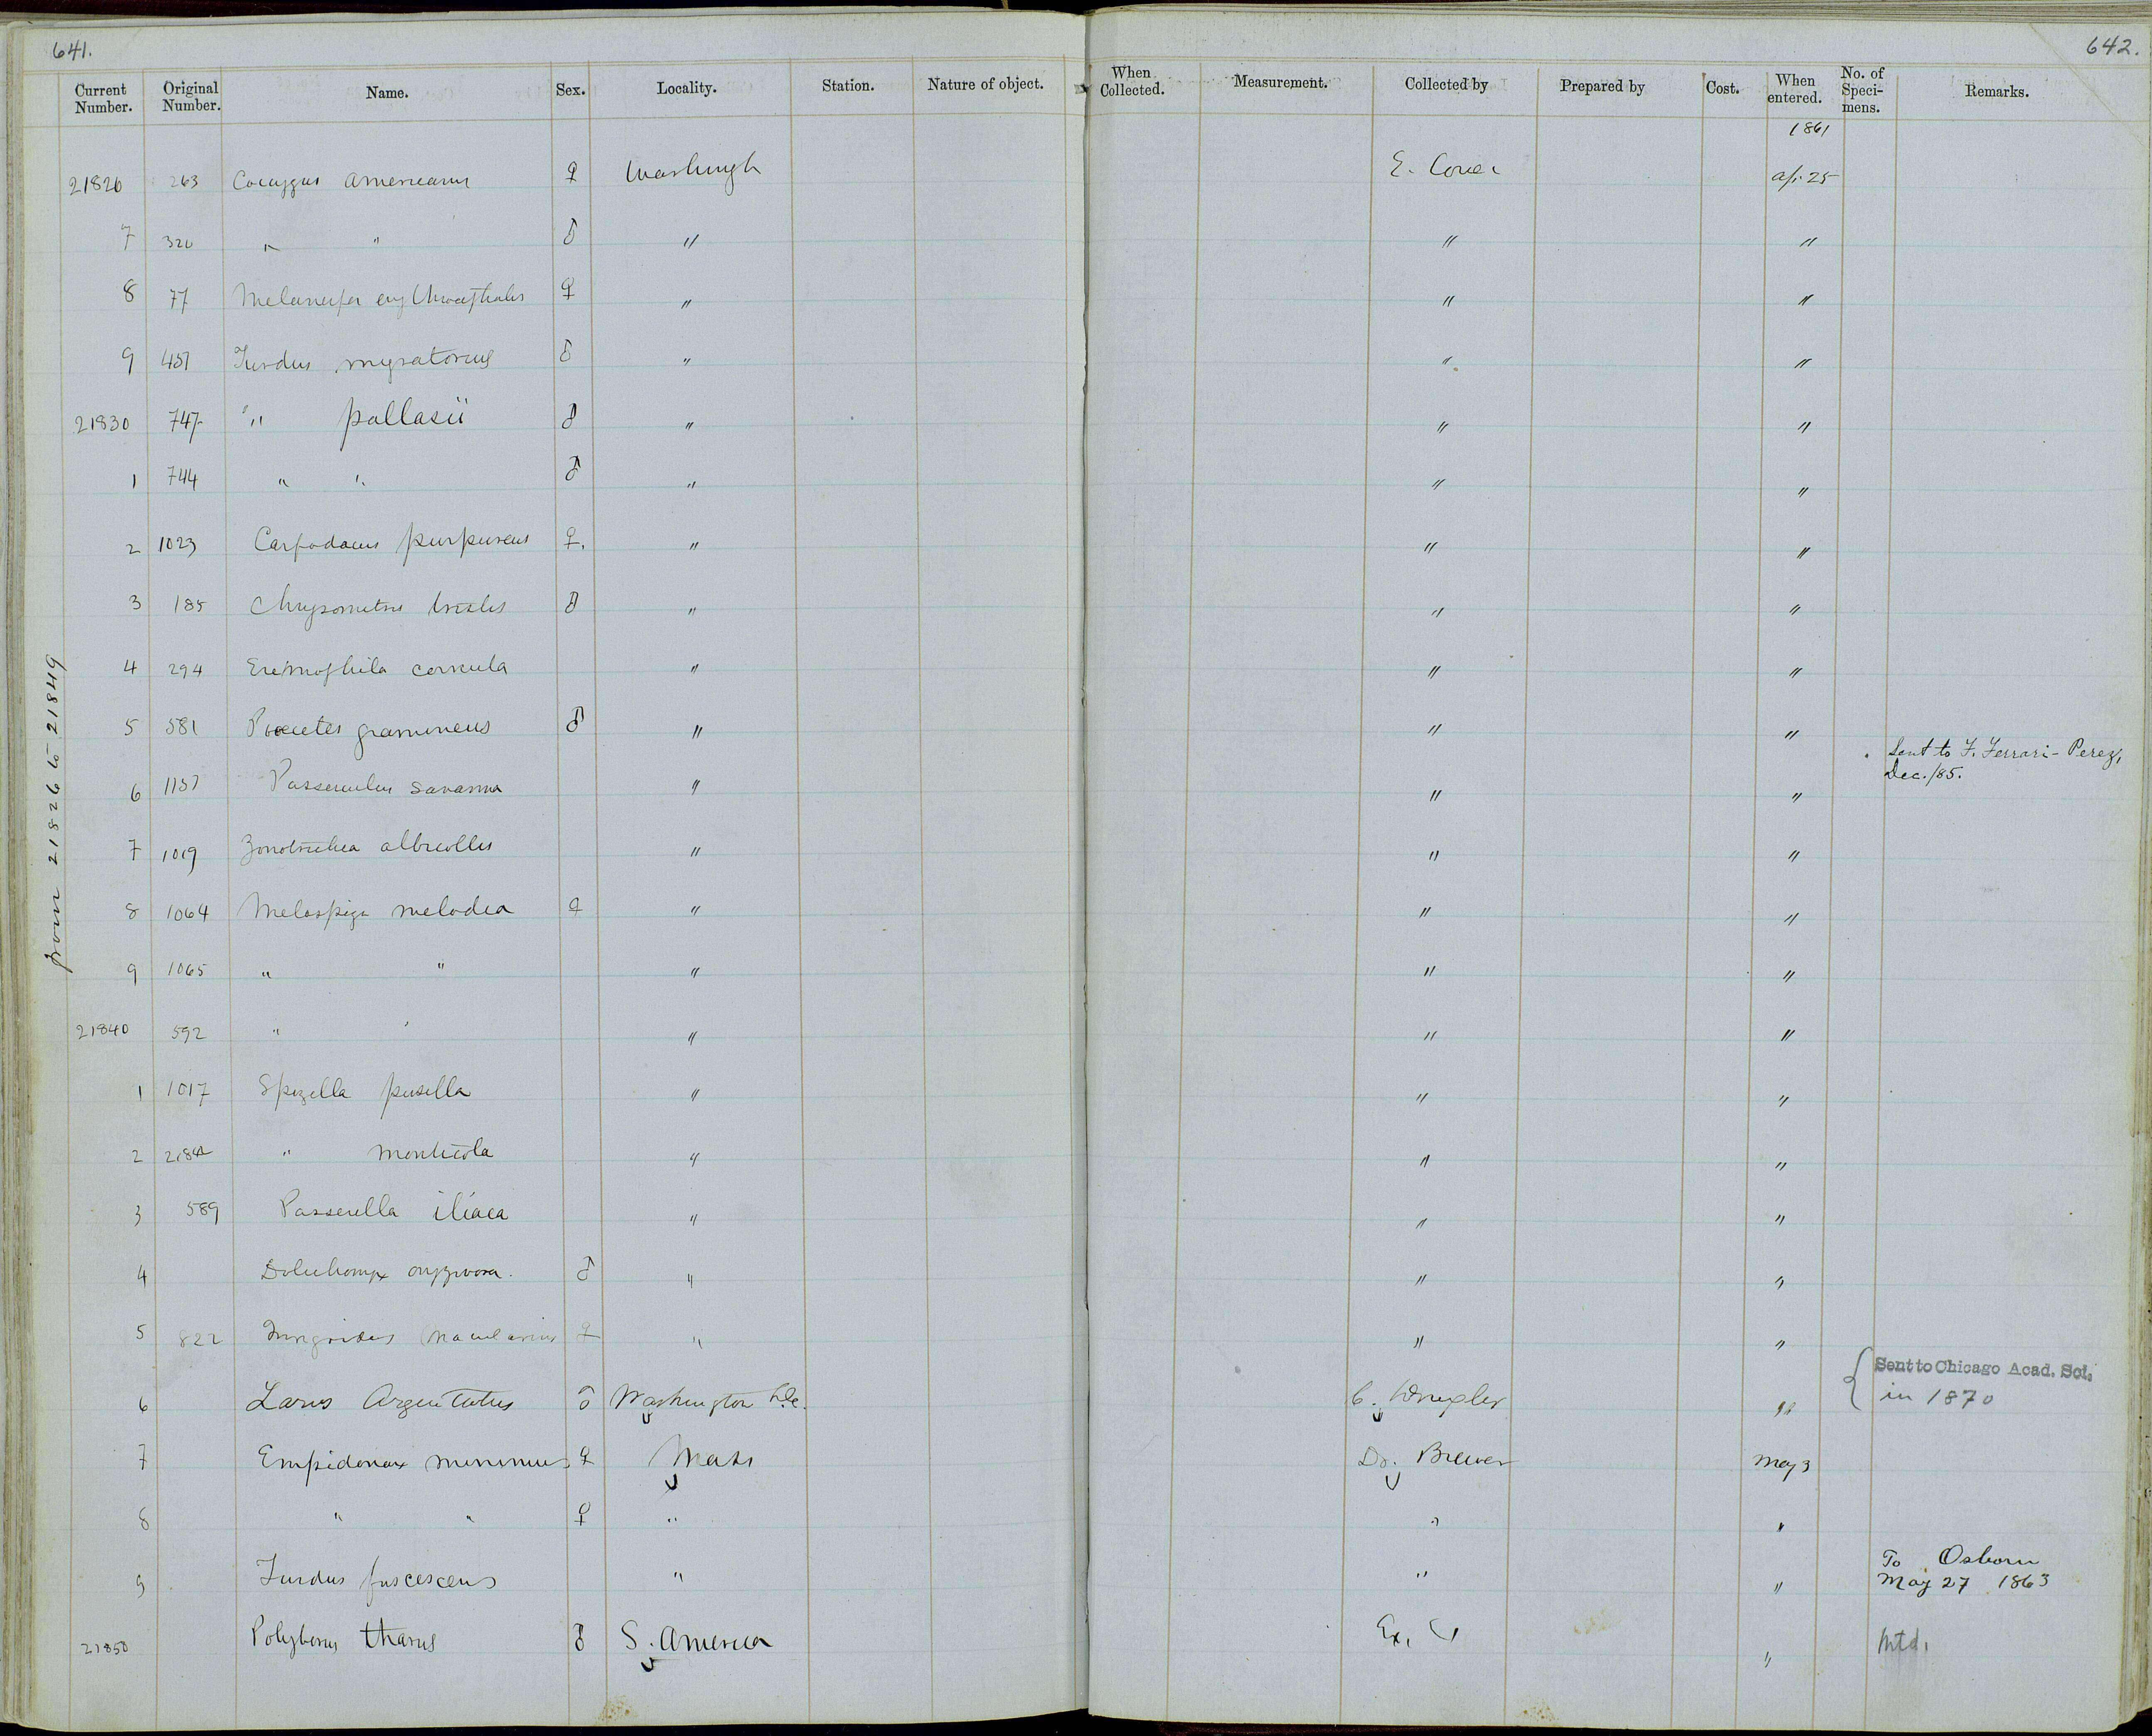 641. 642.
Current Number. Original Number. Name. Sex. Locality. Station. Nature of object. When Collected. Measurement. Collected by Prepared by Cost. When entered. No. of Speci-mens. Remarks.
1861
21826 263 Coccygus americanus ♀ Washingt E. Coues Ap. 25
7 320 " " ♂ " " "
8 77 Melanerpes erythrocephalus ♀ " " "
9 457 Turdus migratorius ♂ " " "
21830 747 " pallasii ♂ " " "
1 744 " " ♂ " " "
2 1023 Carpodacus purpureus ♀. " " "
3 185 Chrysomitris tristis ♂ " " "
4 294 Eremophila cornuta " " "
5 581 Pooecetes gramineus ♂ " " "
6 1157 Passerculus savanna " " " Sent to F. Ferrari-Perez, Dec./85.
7 1019 Zonotrichia albicollis " " "
8 1064 Melospiza melodia ♀ " " "
9 1065 " " " " "
21840 592 " " " " "
1 1017 Spizella pusilla " " "
2 " monticola " " "
3 589 Passerella iliaca " " "
4 Dolichonyx oryzivora. ♂ " " "
5 822 Tringoides macularius ♀ " " "
6 Larus Argentatus ♂ Washington D.C. C. Drexler " { Sent to Chicago Acad. Sci. in 1870
7 Empidonax minimus ♀ Mass Dr. Brewer May 3
8 " " ♀ " " "
9 Turdus fuscescens " " " To Osborn May 27 1863
21850 Polyborus tharus ♂ S. America Ex. " Mtd.
from 21826 to 21849